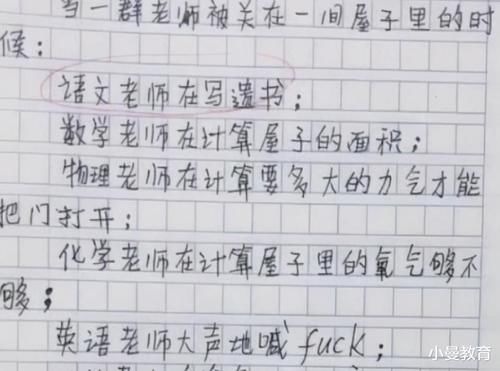 当一群老师被关在一间屋子里的时
候：
语文老师在写遗书；
数学老师在计算屋子的面积；
物理老师在计算要多大的力气才能
把门打开；
化学老师在计算屋子里的氧气够不
够；
英语老师大声地喊fuck；
小曼教育